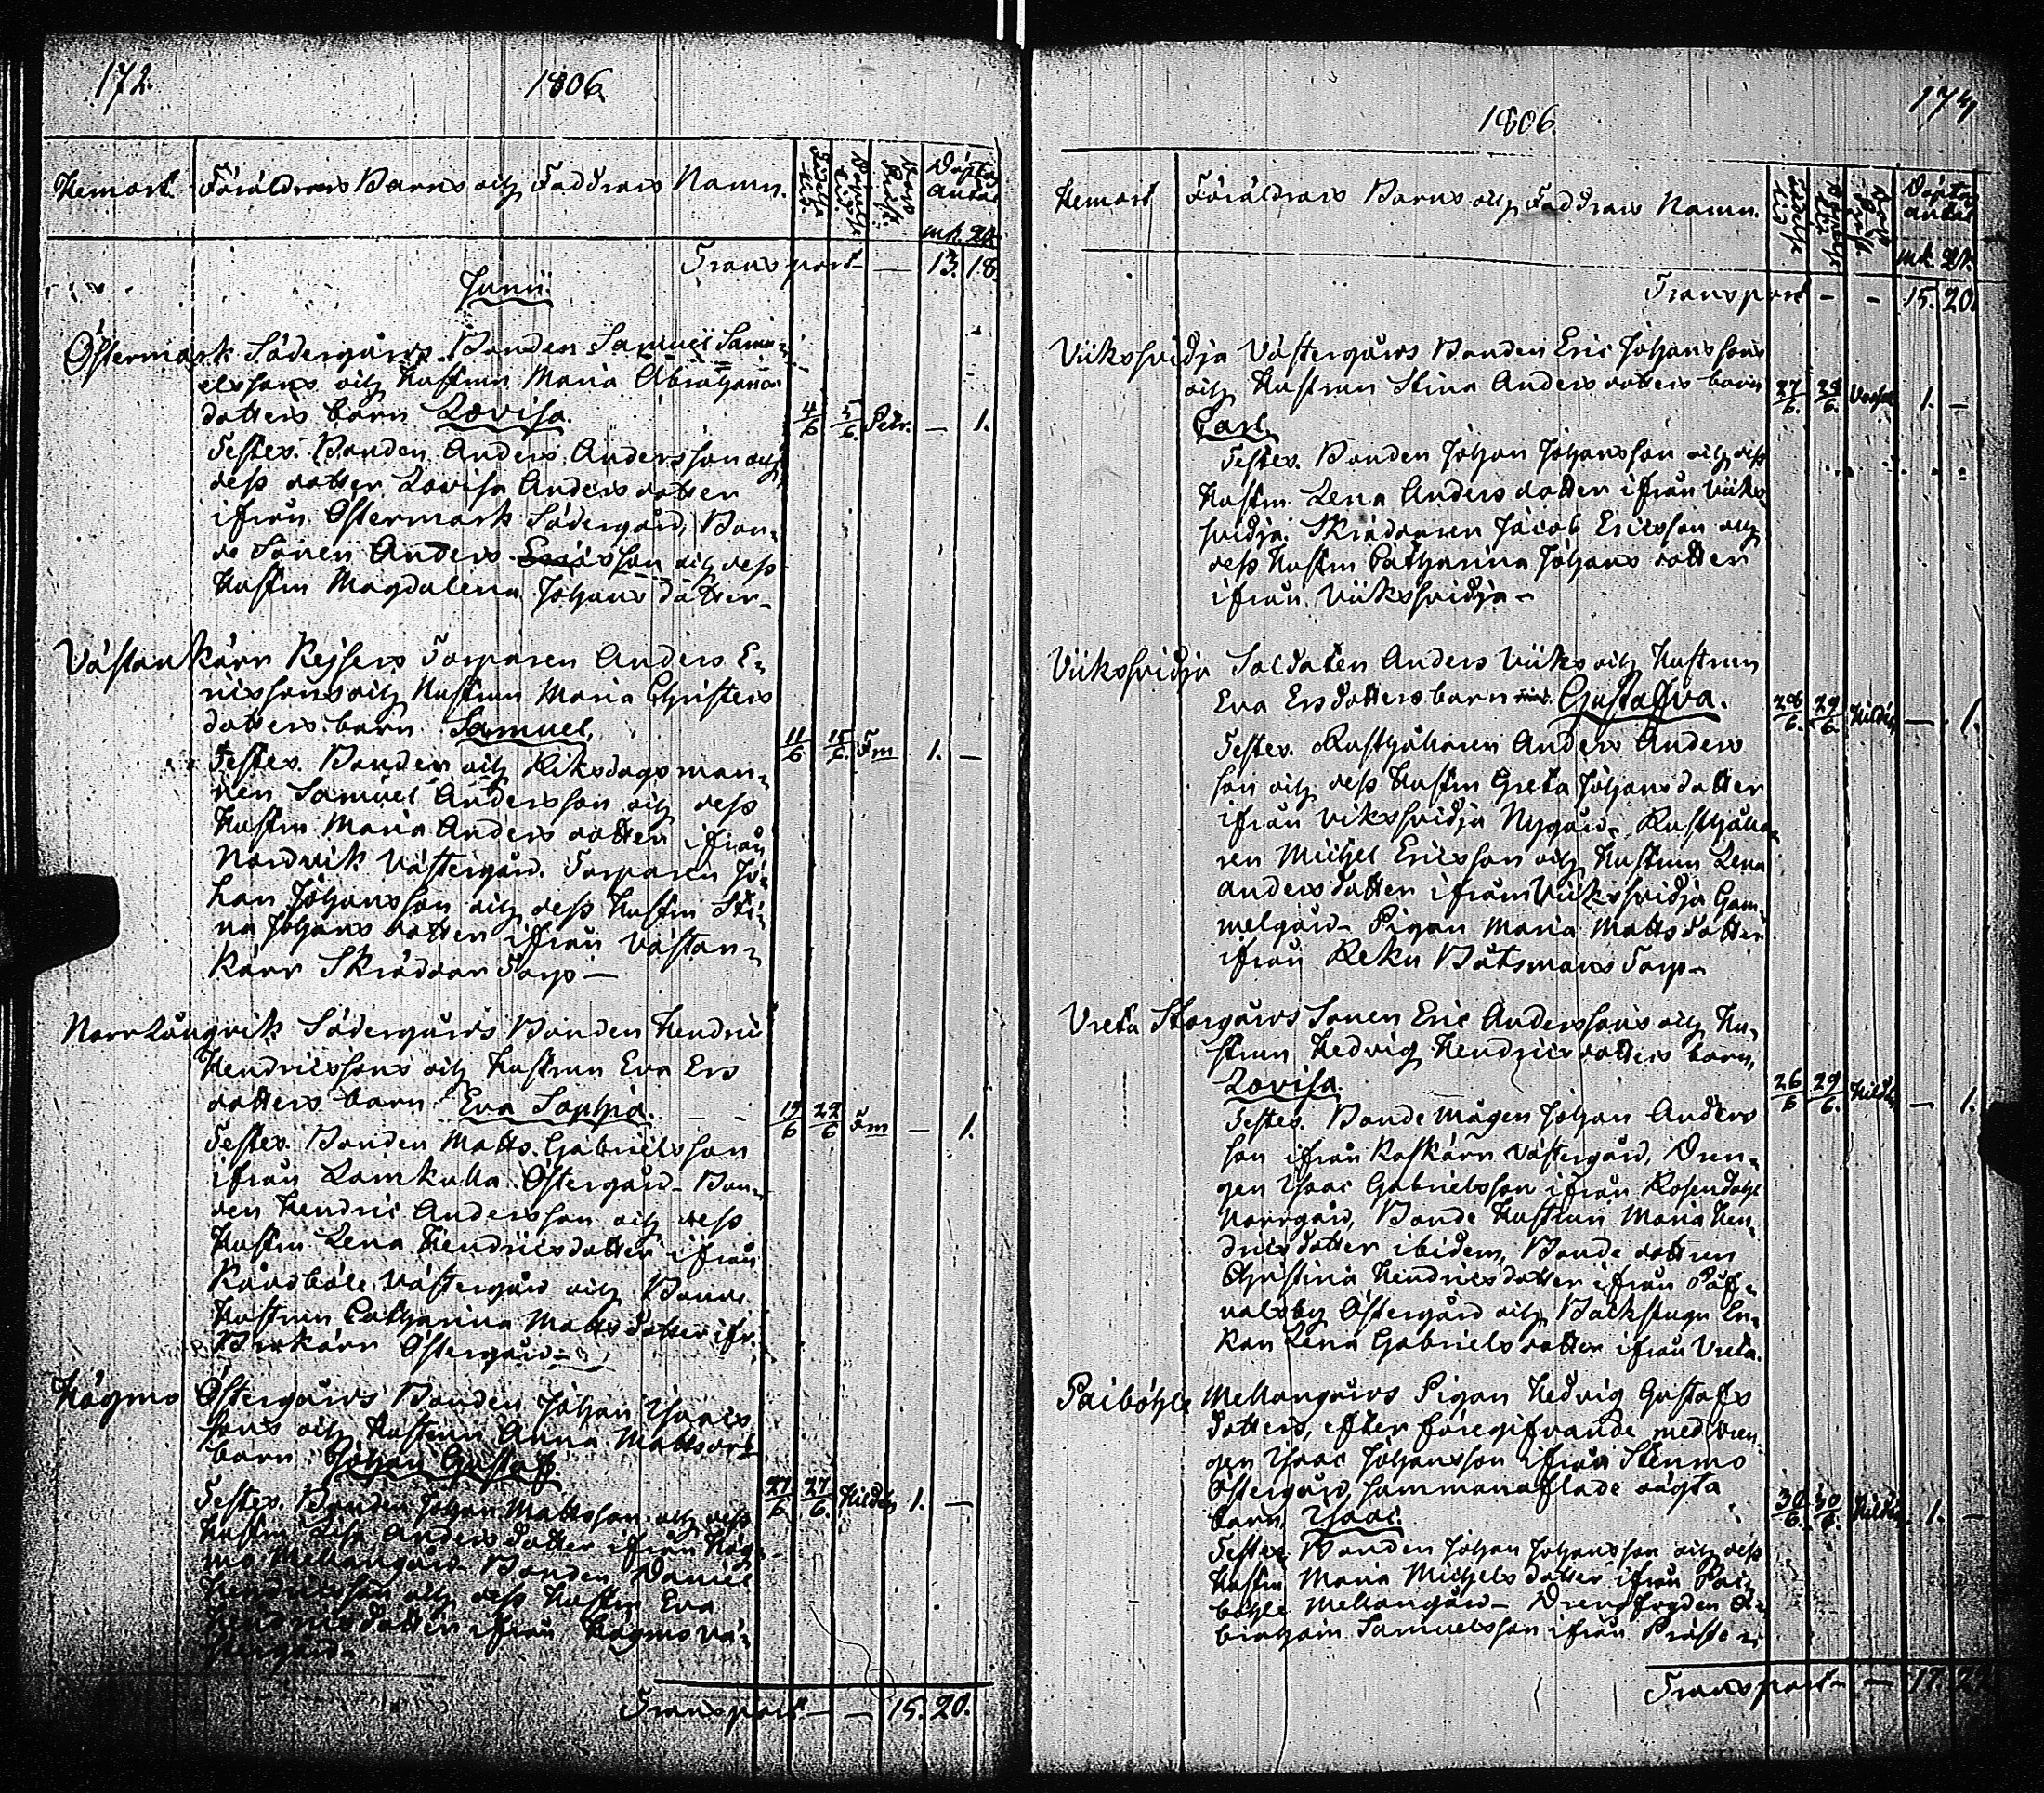 172.
1806.
Hemort. Föräldrars Barns och Faddrars Namn. Födelse tid. Döpelse tid. Döptes antal
mk. qk.
Transport — 13. 18.
Junii.
Östermark Södergårds Bonden Samuel Samu-
elssons och Hustrun Maria Abrahams
dotters barn Lovisa. 4/6 5/6 Petr. — 1.
Testes. Bonden Anders Andersson och
dess dotter Lovisa Andersdotter
ifrån Östermark Södergård, Bon-
de Sonen Anders Ericsson och dess
Hustru Magdalena Johans dotter.
Västankärr Kejsers Torparen Anders E-
ricssons och Hustrun Maria Christers
dotters barn Samuel. 11/6 15/6 Fm 1. —
Testes. Bonden och Riksdagsman-
nen Samuel Andersson och dess
Hustru Maria Anders dotter ifrån
Nordvik Västergård. Torparen Jo-
han Johansson och dess Hustru Sti-
na Johans dotter ifrån Västan-
kärr Skräddar Torp —
Norrlångvik Södergårds Bonden Hendric
Hendricssons och Hustrun Eva Ers
dotters barn Eva Sophia. 19/6 22/6 Fm — 1.
Testes. Bonden Matts Gabrielsson
ifrån Lamkulla Östergård. Bon-
den Hendric Andersson och dess
Hustru Lena Hendricsdotter ifrån
Råådböle Västergård och Bonde
Hustrun Catharina Mattsdotter ifr.
Östergård.
Högmo Östergårds Bonden Johan Isaacs
sons och Hustrun Anna Mattsdrs
barn Johan Gustaf. 27/6 27/6 Hildén 1. —
Testes. Bonden Johan Mattsson och dess
Hustru Lisa Andersdotter ifrån Hög-
mo Mellangård. Bonden Daniel
Hendricsson och dess Hustru Eva
Hendricsdotter ifrån Högmo Vä-
stergård.
Transport — — 15. 20.
1806.
Hemort Föräldrars Barns och Faddrars Namn. Döptes antal
mk. qk.
Transport — — 15. 20.
Viksvidja Västergårds Bonden Eric Johanssons
och Hustrun Stina Anders dotters barn 27/6. 28/6. 1. —
Carl.
Testes. Bonden Johan Johansson och dess
Hustru Lena Andersdotter ifrån Viik-
svidja. Skräddaren Jacob Ericsson och
dess Hustru Catharina Johans dotter
ifrån Viiksvidja —
Viiksvidja Soldaten Anders Viiks och Hustrun
Eva Ersdotters barn Gustafva. 28/6. 29/6. Hildén — 1.
Testes. Rusthållaren Anders Anders
son och dess Hustru Greta Johansdotter
ifrån Viksvidja Nygård. Rusthålla-
ren Michel Ericsson och Hustrun Lena
andersdotter ifrån Viiksvidja Gam-
melgård. Pigan Maria Mattsdotter
ifrån Reku Båtsmans Torp —
Vreta Storgårds Sonen Eric Anderssons och Hu-
strun Hedvig Hendricsdotters barn,
Lovisa. 26/6 29/6. Hildén — 1.
Testes. Bonde mågen Johan Anders
son ifrån Koskärr Västergård, Dren-
gen Isaac Gabrielsson ifrån Rosendahl
Norrgård, Bonde Hustrun Maria Hen-
dricsdotter ibidem, Bonde dottren
Christina Hendricsdotter ifrån Påf-
valsby Östergård och Backstugu En-
kan Lena Gabriels dotter ifrån Vreta.
Paiböhle Mellangårds Pigan Hedvig Gustafs
dotters, efter föregifvande med dren-
gen Isaac Johansson ifrån Stenmo
Östergård sammanaflade oägta
barn, Isaac. 30/6. 30/6. Hildén 1. —
Testes. Bonden Johan Johansson och dess
Hustru Maria Michels dotter ifrån Pai-
böhle Mellangård — Drengfogden A-
braham Samuelsson ifrån
Transport — — 17. 22